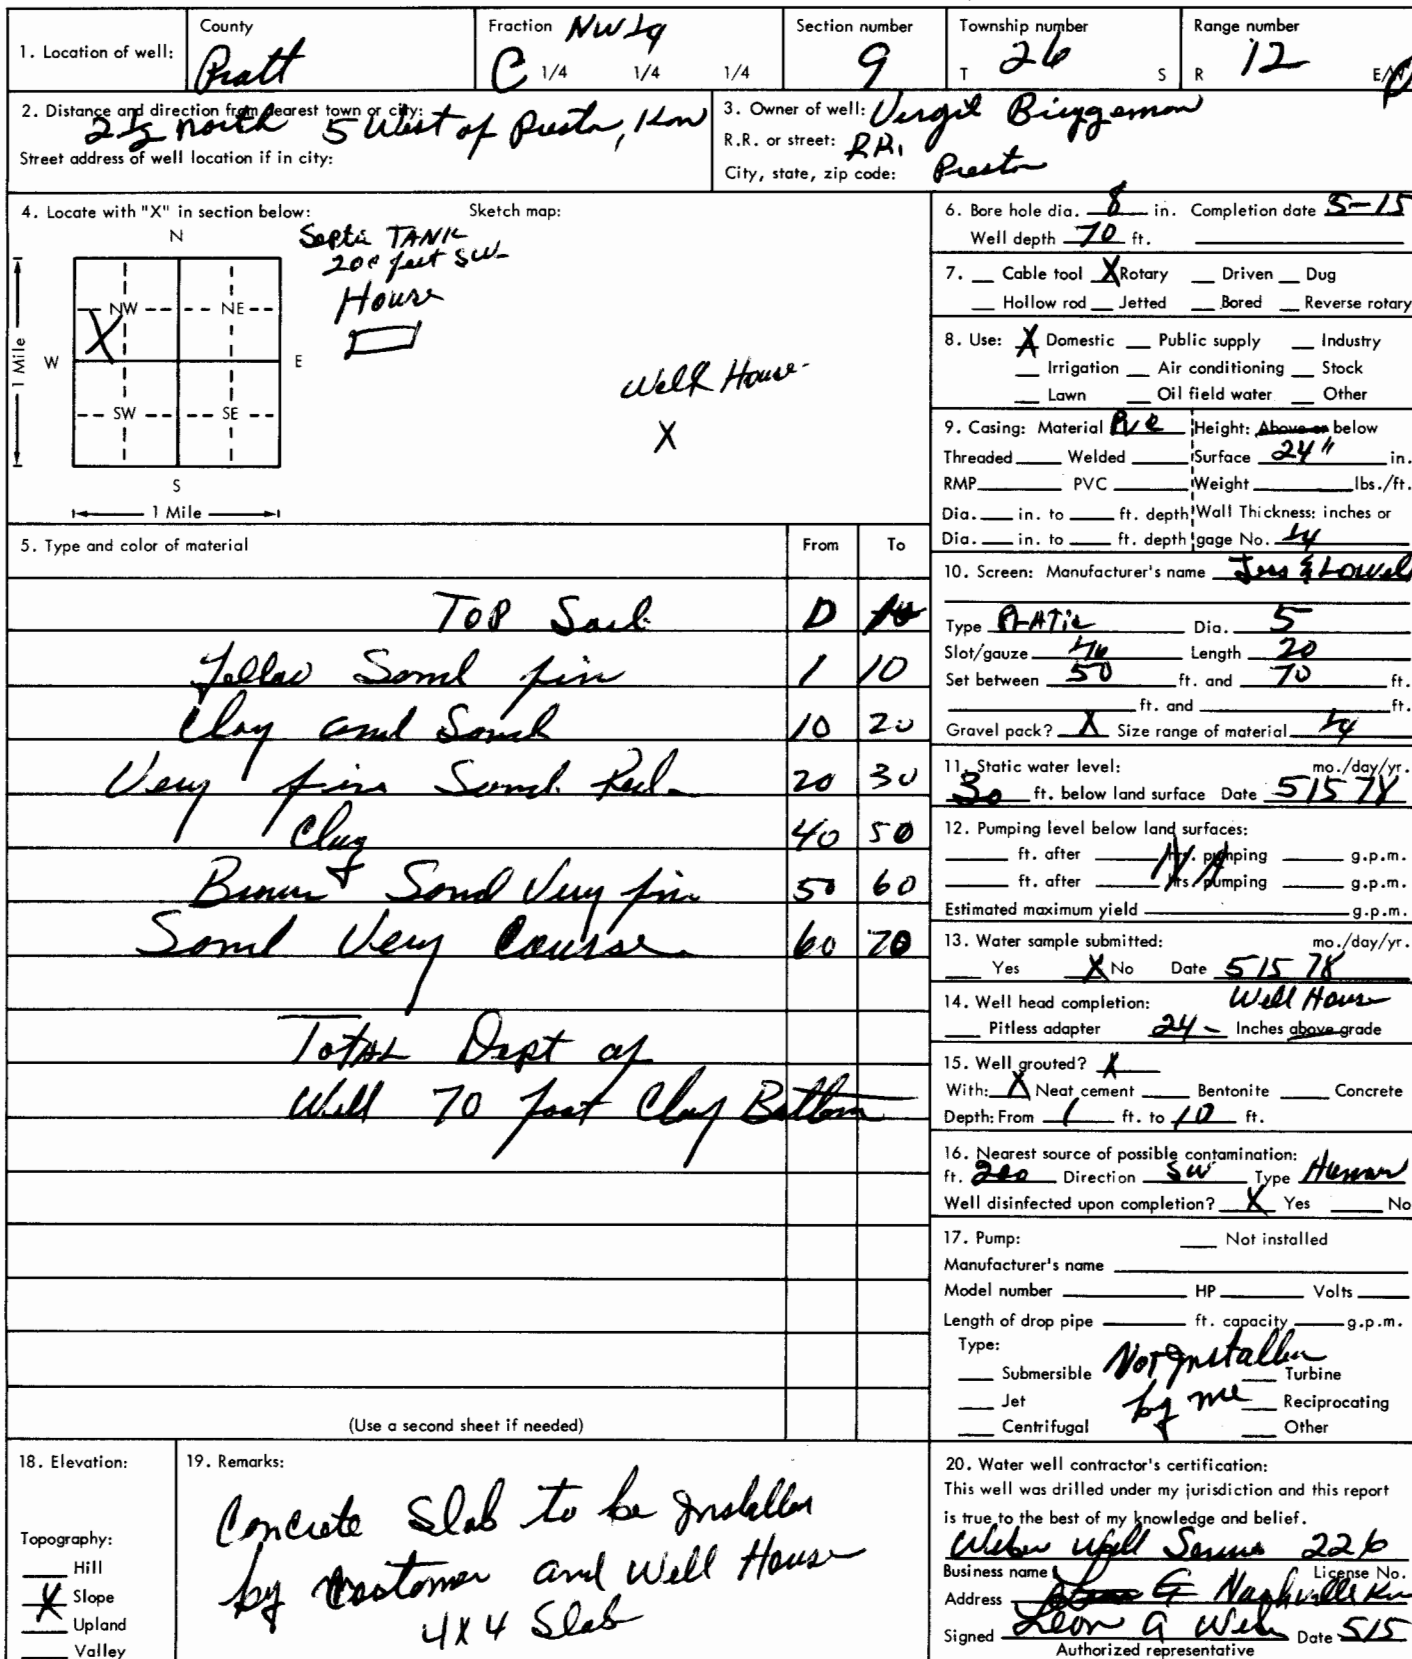 1. Location of well:
County
Pratt
Fraction NW 1/4
C 1/4 1/4 1/4
Section number
9
Township number
T 26 S
Range number
R 12 E/W
2. Distance and direction from nearest town or city:
2 1/2 north 5 West of Preston, Kan
Street address of well location if in city:
3. Owner of well: Virgil
R.R. or street: RR1
City, state, zip code: Preston
4. Locate with "X" in section below:
Sketch map:
N
NW NE
X
W E
SW SE
S
1 Mile
1 Mile
Septic TANK
200 feet SW
House
Well House
X
5. Type and color of material From To
TOP Soil 0
Yellow Sand fin 1 10
Clay and Sand 10 20
Very fine Sand Red 20 30
Clay 40 50
Brown Sand Very fin 50 60
Sand Very Course 60 70
Total Dept of
Well 70 foot Clay Bottom
(Use a second sheet if needed)
6. Bore hole dia. 8 in. Completion date 5-15
Well depth 70 ft.
7. Cable tool X Rotary Driven Dug
Hollow rod Jetted Bored Reverse rotary
8. Use: X Domestic Public supply Industry
Irrigation Air conditioning Stock
Lawn Oil field water Other
9. Casing: Material PVC Height: Above or below
Threaded Welded Surface 24" in.
RMP PVC Weight lbs./ft.
Dia. in. to ft. depth Wall Thickness: inches or
Dia. in. to ft. depth gage No. 1/4
10. Screen: Manufacturer's name Jess & Lowell
Type Dia. 5
Slot/gauze Length 20
Set between 50 ft. and 70 ft.
ft. and ft.
Gravel pack? X Size range of material 1/4
11. Static water level: mo./day/yr.
30 ft. below land surface Date 5 15 78
12. Pumping level below land surfaces:
ft. after hrs. pumping g.p.m.
NA
ft. after hrs. pumping g.p.m.
Estimated maximum yield g.p.m.
13. Water sample submitted: mo./day/yr.
Yes X No Date 5 15 78
14. Well head completion: Well House
Pitless adapter 24 - Inches above grade
15. Well grouted? X
With: X Neat cement Bentonite Concrete
Depth: From 1 ft. to 10 ft.
16. Nearest source of possible contamination:
ft. 200 Direction SW Type Human
Well disinfected upon completion? X Yes No
17. Pump: Not installed
Manufacturer's name
Model number HP Volts
Length of drop pipe ft. capacity g.p.m.
Type:
Submersible Not Installed Turbine
Jet by me Reciprocating
Centrifugal Other
18. Elevation:
Topography:
Hill
X Slope
Upland
Valley
19. Remarks:
Concrete Slab to be Installed
by Customer and Well House
4x4 Slab
20. Water well contractor's certification:
This well was drilled under my jurisdiction and this report
is true to the best of my knowledge and belief.
Weber Well Service 226
Business name License No.
Address Nashville Kan
Signed Leon G Weber Date 5/15
Authorized representative